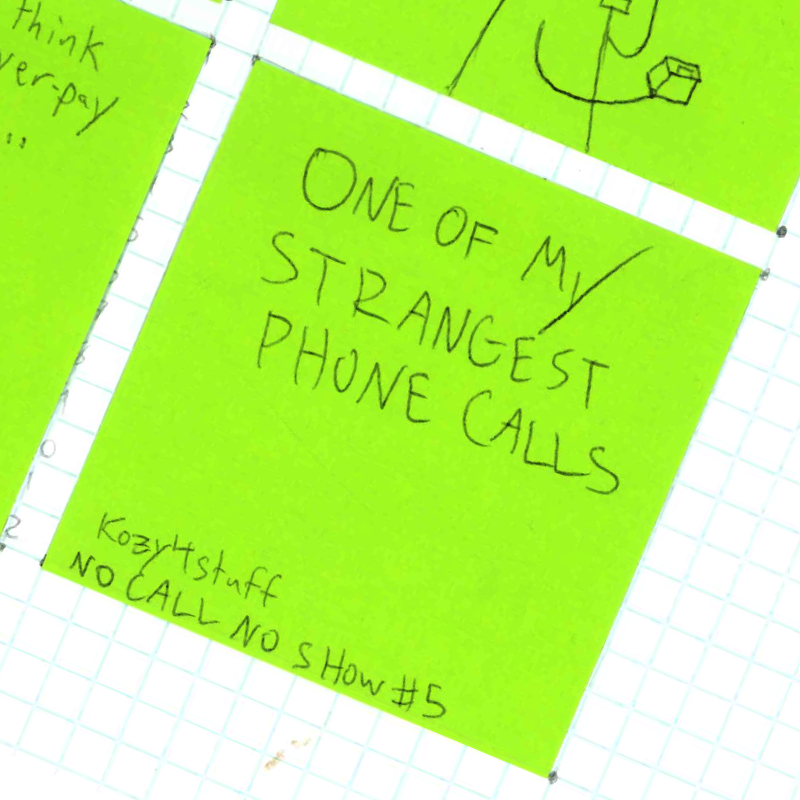 think
ver-pay
...
ONE OF My
STRANGEST
PHONE CALLS
Kozy4stuff
NO CALL NO SHOW #5